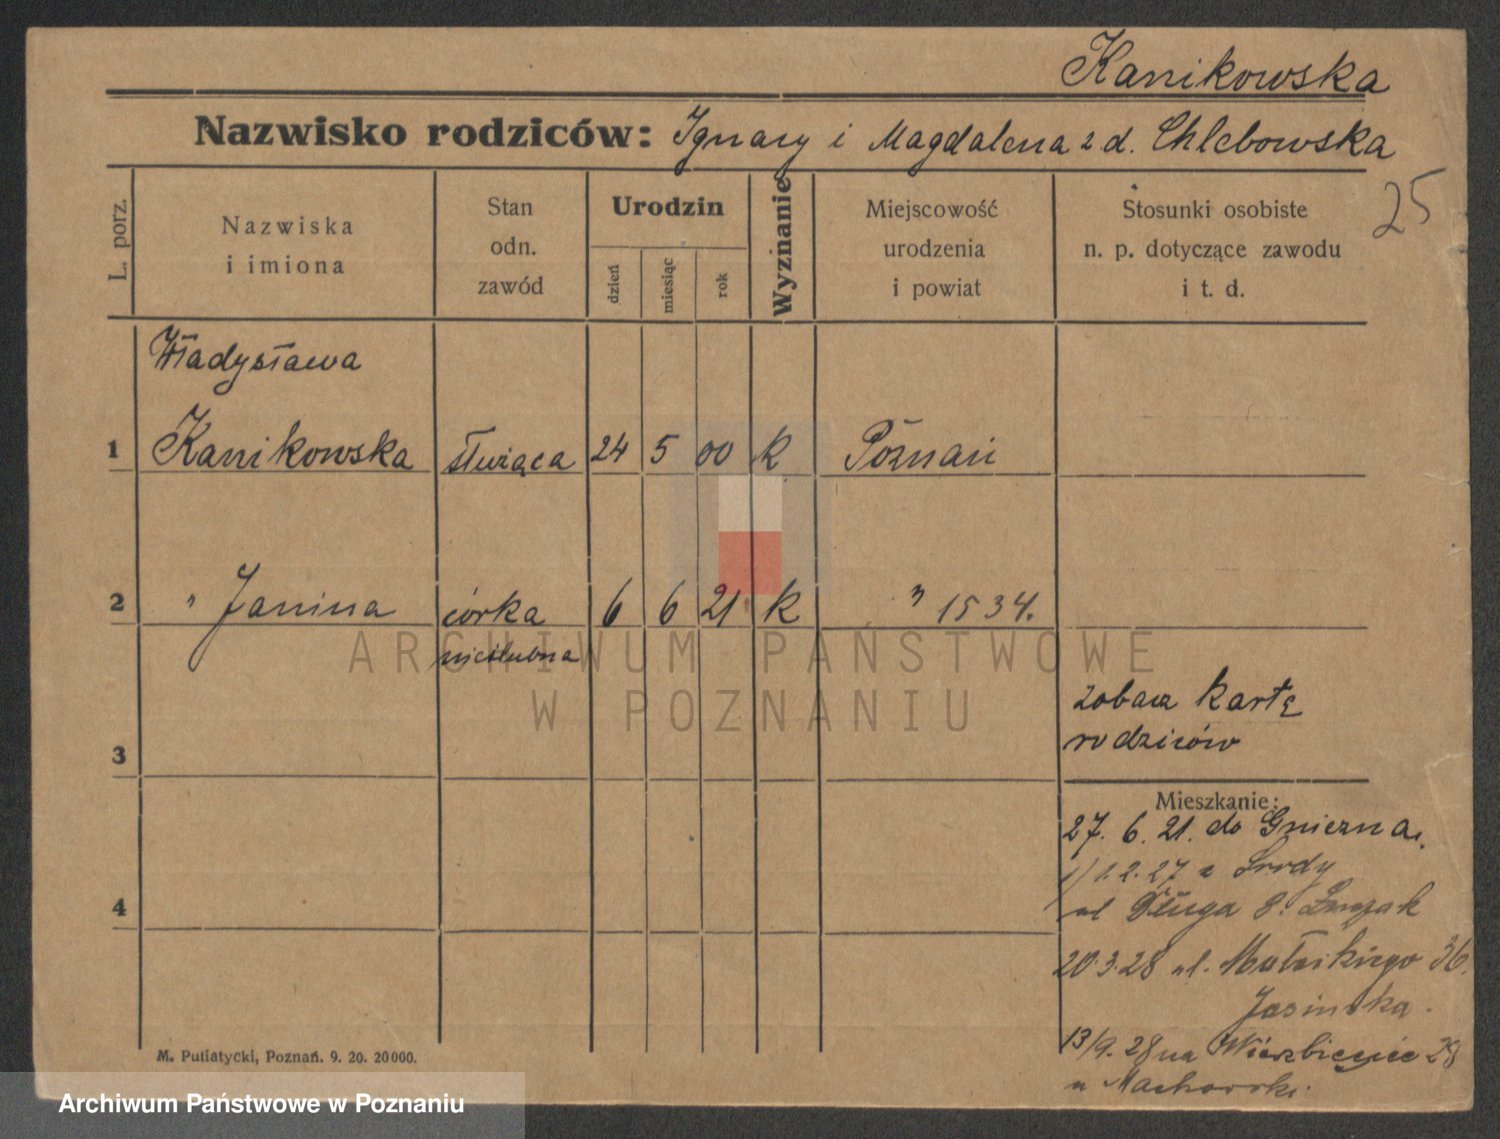 Kanikowska
Nazwisko rodziców: Ignacy i Magdalena z d. Chlebowska
25
L. porz.
Nazwiska
i imiona
Stan
odn.
zawód
Urodzin
dzień
miesiąc
rok
Wyznanie
Miejscowość
urodzenia
i powiat
Stosunki osobiste
n. p. dotyczące zawodu
i t. d.
Władysława
1 Kanikowska służąca 24 5 00 k Poznań
2 " Janina córka 6 6 21 k " 1534.
nieślubna
ARCHIWUM PAŃSTWOWE
W POZNANIU
zobacz kartę
rodziców
3
Mieszkanie:
27. 6. 21. do Gniezna.
1.2.27 z Środy
4
ul Długa 8.
20.3.28 ul. 36.
Jasińska.
13/9.28 na Wierzbięcice 28
u Machorski.
M. Putiatycki, Poznań. 9. 20. 20000.
Archiwum Państwowe w Poznaniu